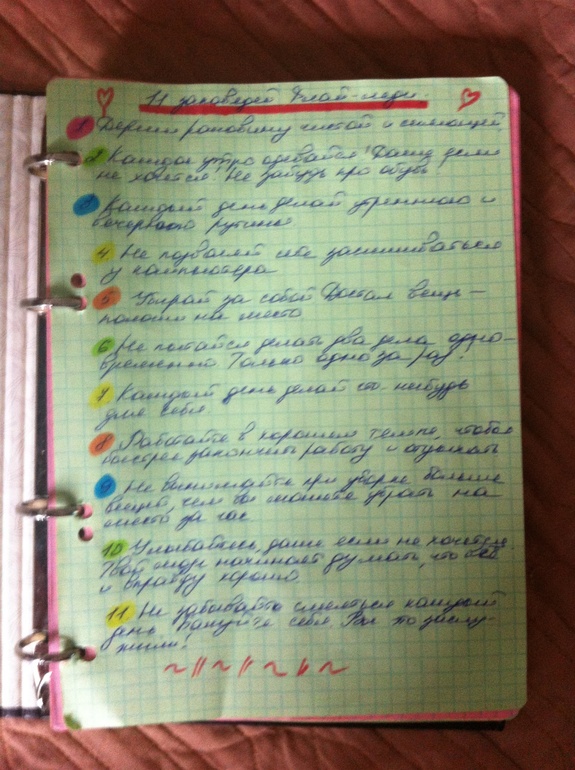 11 заповедей Флай-леди.
1 Держи раковину чистой и сияющей
2 Каждое утро одевайся! Даже если
не хочется! Не забудь про обувь
3 Каждый день делай утреннюю и
вечернюю рутины
4 Не позволяй себе засиживаться
у компьютера
5 Убирай за собой. Достал вещь –
положи на место
6 Не пытайся делать два дела одно-
временно. Только одно за раз
7 Каждый день делай что-нибудь
для себя.
8 Работайте в хорошем темпе, чтобы
быстрее закончить работу и отдыхать
9 Не вынимайте при уборке больше
вещей, чем вы можете убрать на
место за час
10 Улыбайтесь, даже если не хочется.
Твой мозг начинает думать, что всё
и вправду хорошо
11 Не забывайте смеяться каждый
день. Балуйте себя. Вы то заслу-
жили!